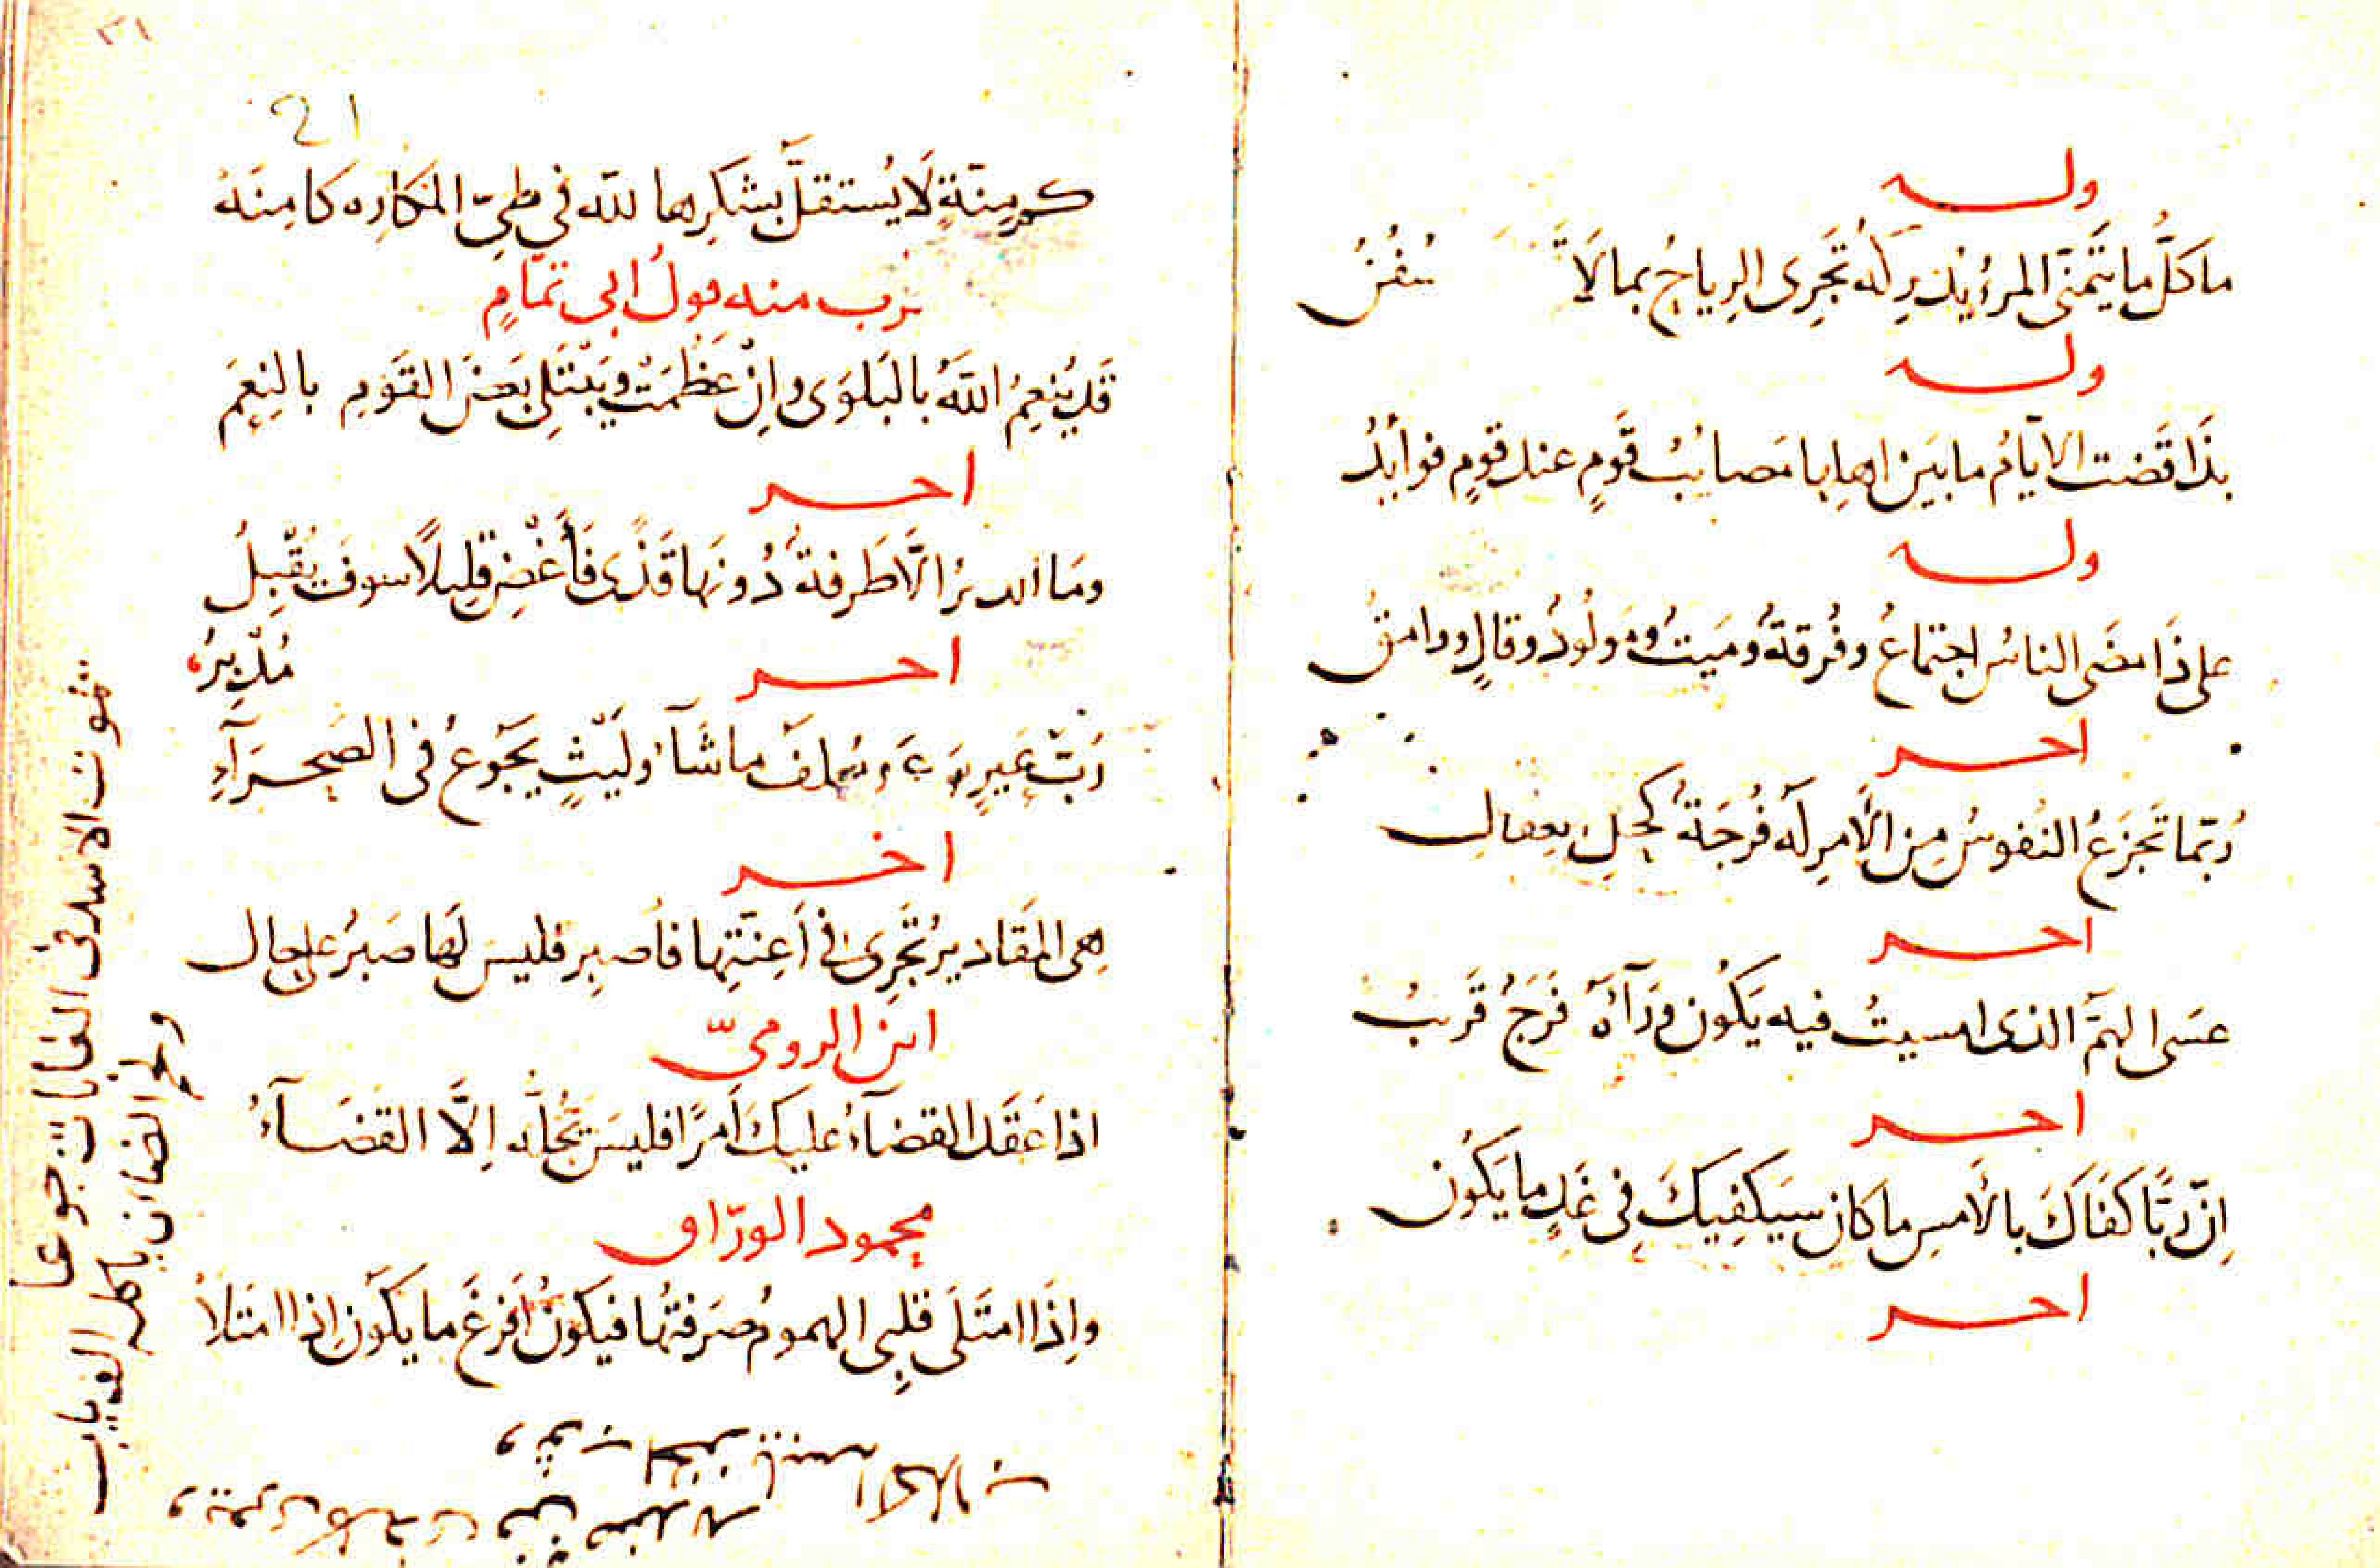 وله
ما كلُّ ما يَتَمنّى المرءُ يُدرِكُه تَجرِى الرِياحُ بما لَا سُفُنُ
وله
بذَا قَضت الايّامُ ما بَين اهلِها مَصائبُ قَومٍ عند قومٍ فوائِدُ
وله
على ذَا مضَى الناسُ اجتماعُ وفُرقةُ ومَيتُ ومَولُودُ وقالٍ ووامقُ
اخر
رُبّما تَجزَعُ النُفوسُ مِن الأمرِ له فُرجَةُ كحلِ العقال
اخر
عسَى الهَمّ الذى امسيتُ فيه يَكُون وَرَآءَهُ فَرَجُ قَريبُ
اخر
اِنّ رَبًّا كفَاكَ بالأمسِ ما كان سيَكفِيكَ فِى غَدٍ ما يَكُون
اخر
٢١
21
كم مِنّةٍ لَا يُستقلّ بشكرِها لله فى طىّ المَكارِه كامِنَهْ
قرب منه قولُ ابى تمّامٍ
قَد يُنعِمُ اللّهُ بالبَلوَى واِنْ عَظُمَتْ ويَبْتَلِى بَعضَ القَومِ بالنِعَمِ
اخر
ومَا الدهرُ الَّا طَرفةُ دُونَها قَذًى فَأَغْضِ قليلًا سوفَ يُقْبِلُ
مُدْبِرُ
اخر
رُبّ عَيرٍ يُعلَفُ ماشَآء وليَثٍ يَجُوعُ فى الصَحرَآءِ
اخر
هِى المَقاديرُ تَجرِى فى اَعِنّتِها فاَصبِر فليسَ لَها صَبرُ على حال
ابن الرومىّ
اذا عَقَد القضآءُ عليكَ أَمرًا فليسَ يَحُلُّه اِلَّا القَضَآءُ
محمود الورّاق
واِذَا امتَلَى قلبِى الهمومُ صَرَفتُها فيكونُ أَفرَغَ ما يَكُون اذا امتَلأ
تموت الاسد فى الغابات جوعا
ولحم الضان ياكله